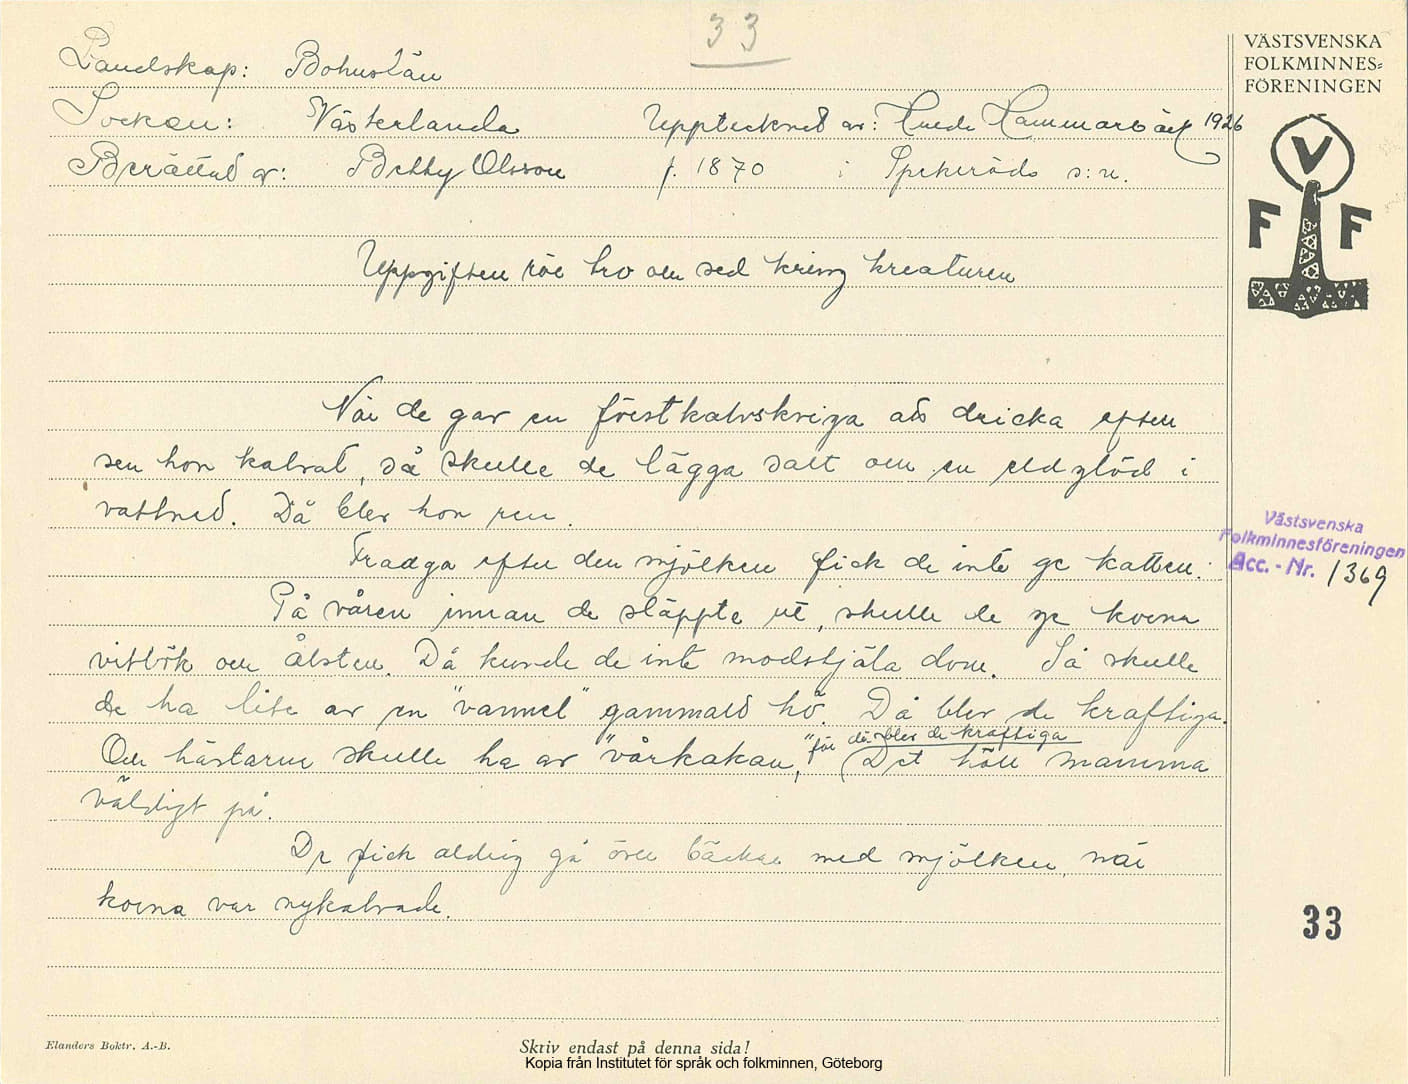 33
VÄSTSVENSKA
FOLKMINNES=
FÖRENINGEN
Landskap: Bohuslän
Socken: Västerlanda Upptecknat av: Hammarbäck 1926
Berättad av: Betty Olsson f. 1870 i Spekeröds s:n.
V
F F
Uppgiften rör tro och sed kring kreaturen
När de gav en förstkalvskviga att dricka efter
sen hon kalvat, så skulle de lägga salt och en eldglöd i
vattned. Då blev hon ren.
Fradga efter den mjölken fick de inte ge katten.
På våren innan de släppte ut, skulle de ge korna
vitlök och ålsten. Då kunde de inte modstjäla dom. Så skulle
de ha lite av en "vannel" gammald hö. Då blev de kraftiga.
Och hästarna skulle ha av "vårkakan," för då blev de kraftiga (Det höll mamma
väldigt på.
De fick aldrig gå över bäckar med mjölken, när
korna var nykalvade.
Västsvenska
Folkminnesföreningen
Acc. - Nr. 1369
33
Elanders Boktr. A.-B.
Skriv endast på denna sida!
Kopia från Institutet för språk och folkminnen, Göteborg